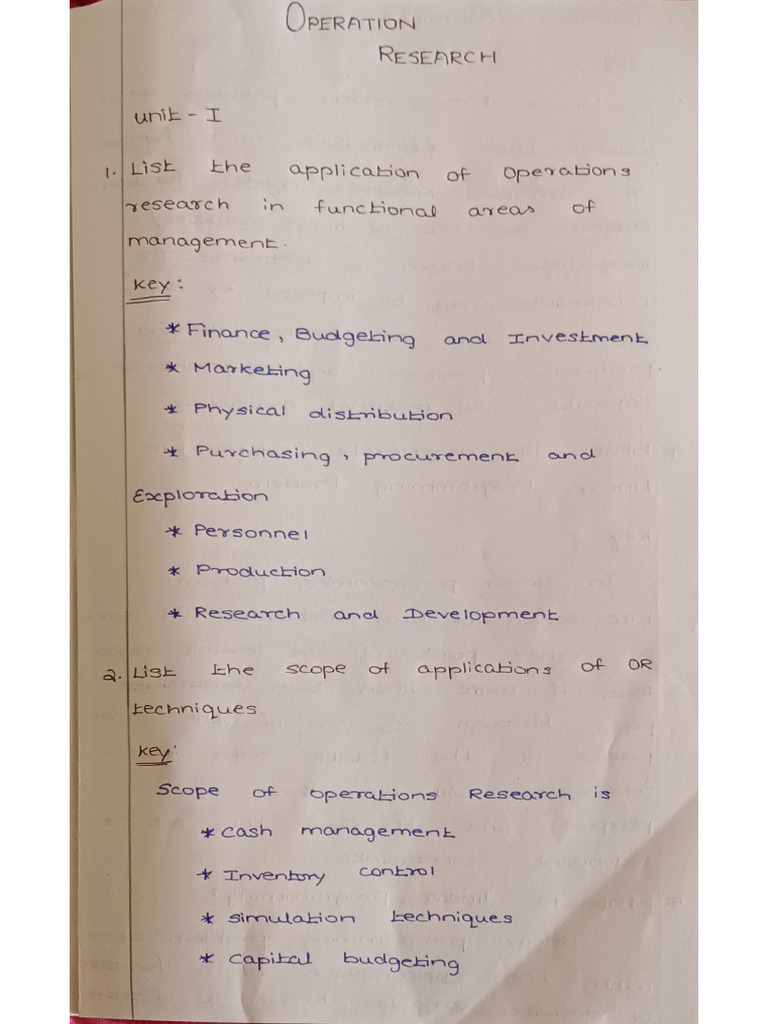 OPERATION
RESEARCH
unit - I
1. List the application of Operations
research in functional areas of
management.
Key :
* Finance, Budgeting and Investment
* Marketing
* Physical distribution
* Purchasing, procurement and
Exploration
* Personnel
* Production
* Research and Development
2. List the scope of applications of OR
techniques.
Key:
Scope of operations Research is
* Cash management
* Inventory control
* simulation techniques
* Capital budgeting